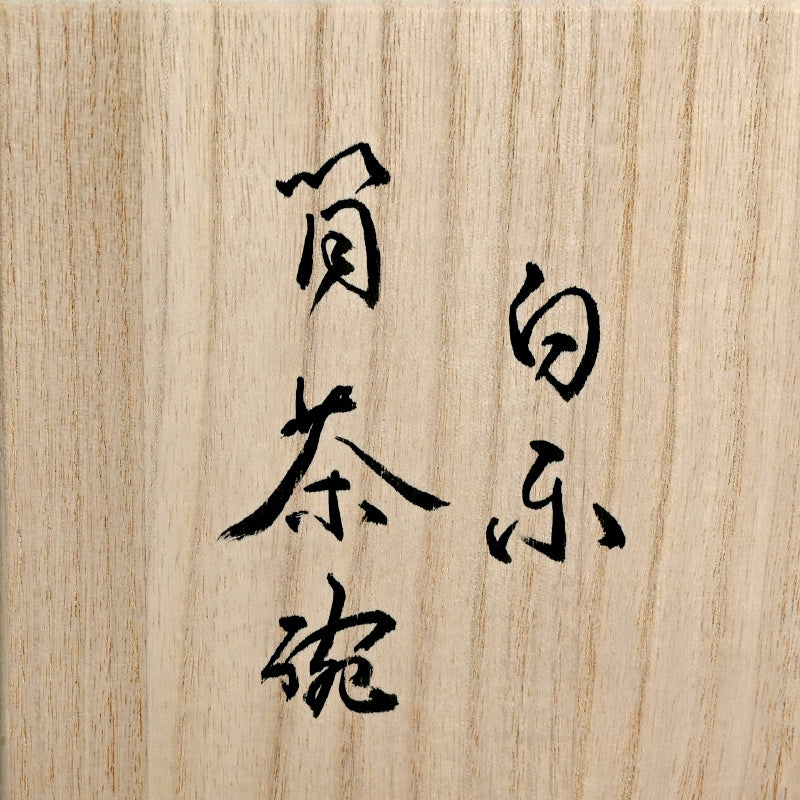 白楽
筒茶碗